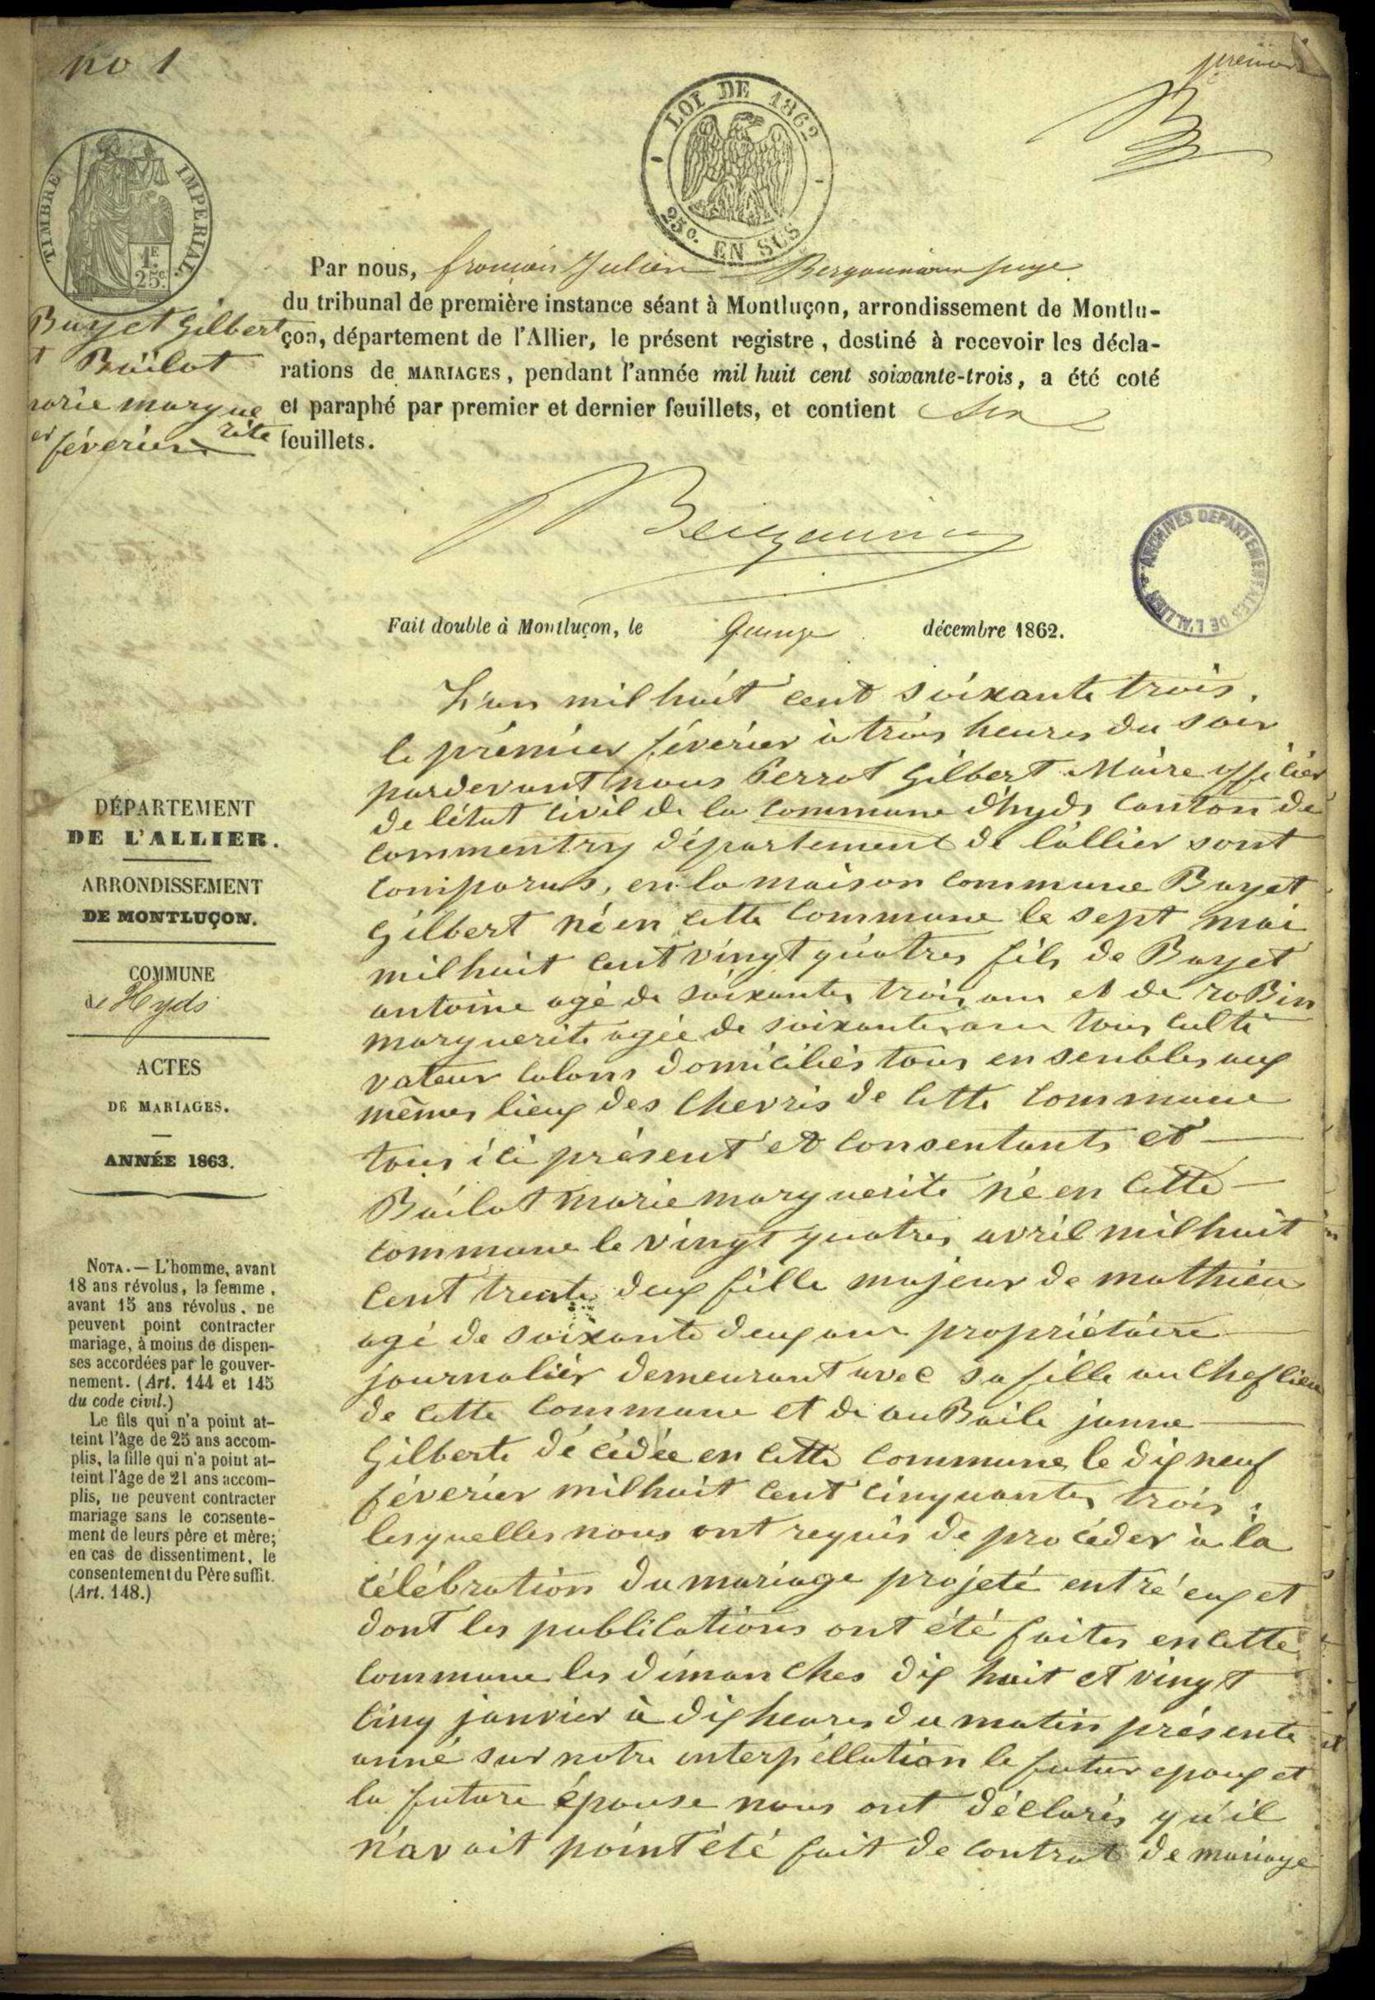 no 1
premier
LOI DE 1862
25c. EN SUS
TIMBRE IMPERIAL
1F 25c
Par nous, françois Julien Bergounioux juge
du tribunal de première instance séant à Montluçon, arrondissement de Montlu-
çon, département de l'Allier, le présent registre, destiné à recevoir les décla-
rations de MARIAGES, pendant l'année mil huit cent soixante-trois, a été coté
et paraphé par premier et dernier feuillets, et contient
feuillets.
Fait double à Montluçon, le quinze décembre 1862.
ARCHIVES DEPARTEMENTALES DE L'ALLIER
Buyet Gilbert
t Bailot
marie margue
rite
er féverier
DÉPARTEMENT
DE L'ALLIER.
ARRONDISSEMENT
DE MONTLUÇON.
COMMUNE
de Hyds
ACTES
DE MARIAGES.
ANNÉE 1863.
NOTA. — L'homme, avant
18 ans révolus, la femme,
avant 15 ans révolus, ne
peuvent point contracter
mariage, à moins de dispen-
ses accordées par le gouver-
nement. (Art. 144 et 145
du code civil.)
Le fils qui n'a point at-
teint l'âge de 25 ans accom-
plis, la fille qui n'a point at-
teint l'âge de 21 ans accom-
plis, ne peuvent contracter
mariage sans le consente-
ment de leurs père et mère;
en cas de dissentiment, le
consentement du Père suffit.
(Art. 148.)
L'an mil huit cent soixante trois.
le prémier féverier à trois heures du soir
pardevant nous Perrot Gilbert Maire officier
de l'état civil de la commune d'hyds canton de
commentry département de l'allier sont
comparus, en la maison commune Buyet
Gilbert né en cette commune le sept mai
mil huit cent vingt quatres fils de Buyet
antoine agé de soixantes trois ans et de roBin
marguerite agée de soixantes ans tous culti
vateur colons domiciliés tous ensenbles aux
mêmes lieux des chevris de cette commune
tous ici présent et consentants et
Bailot marie marguerite né en cette
commune le vingt quatres avril mil huit
cent trente deux fille majeur de mathieu
agé de soixante deux ans propriétaire
journalier demeurant avec sa fille au Chef lieu
de cette commune et de auBaile janne
Gilberte décédée en cette commune le dix neuf
féverier mil huit cent cinquantes trois.
lesquelles nous ont requis de procéder à la
célébration du mariage projeté entré eux et
dont les publications ont été faites en cette
commune les dimanches dix huit et vingt
cinq janvier à dix heures du matin présente
anné sur notre interpéllation le futur epoux et
la future épouse nous ont déclarés qu'il
n'avait point été fait de contrat de mariage